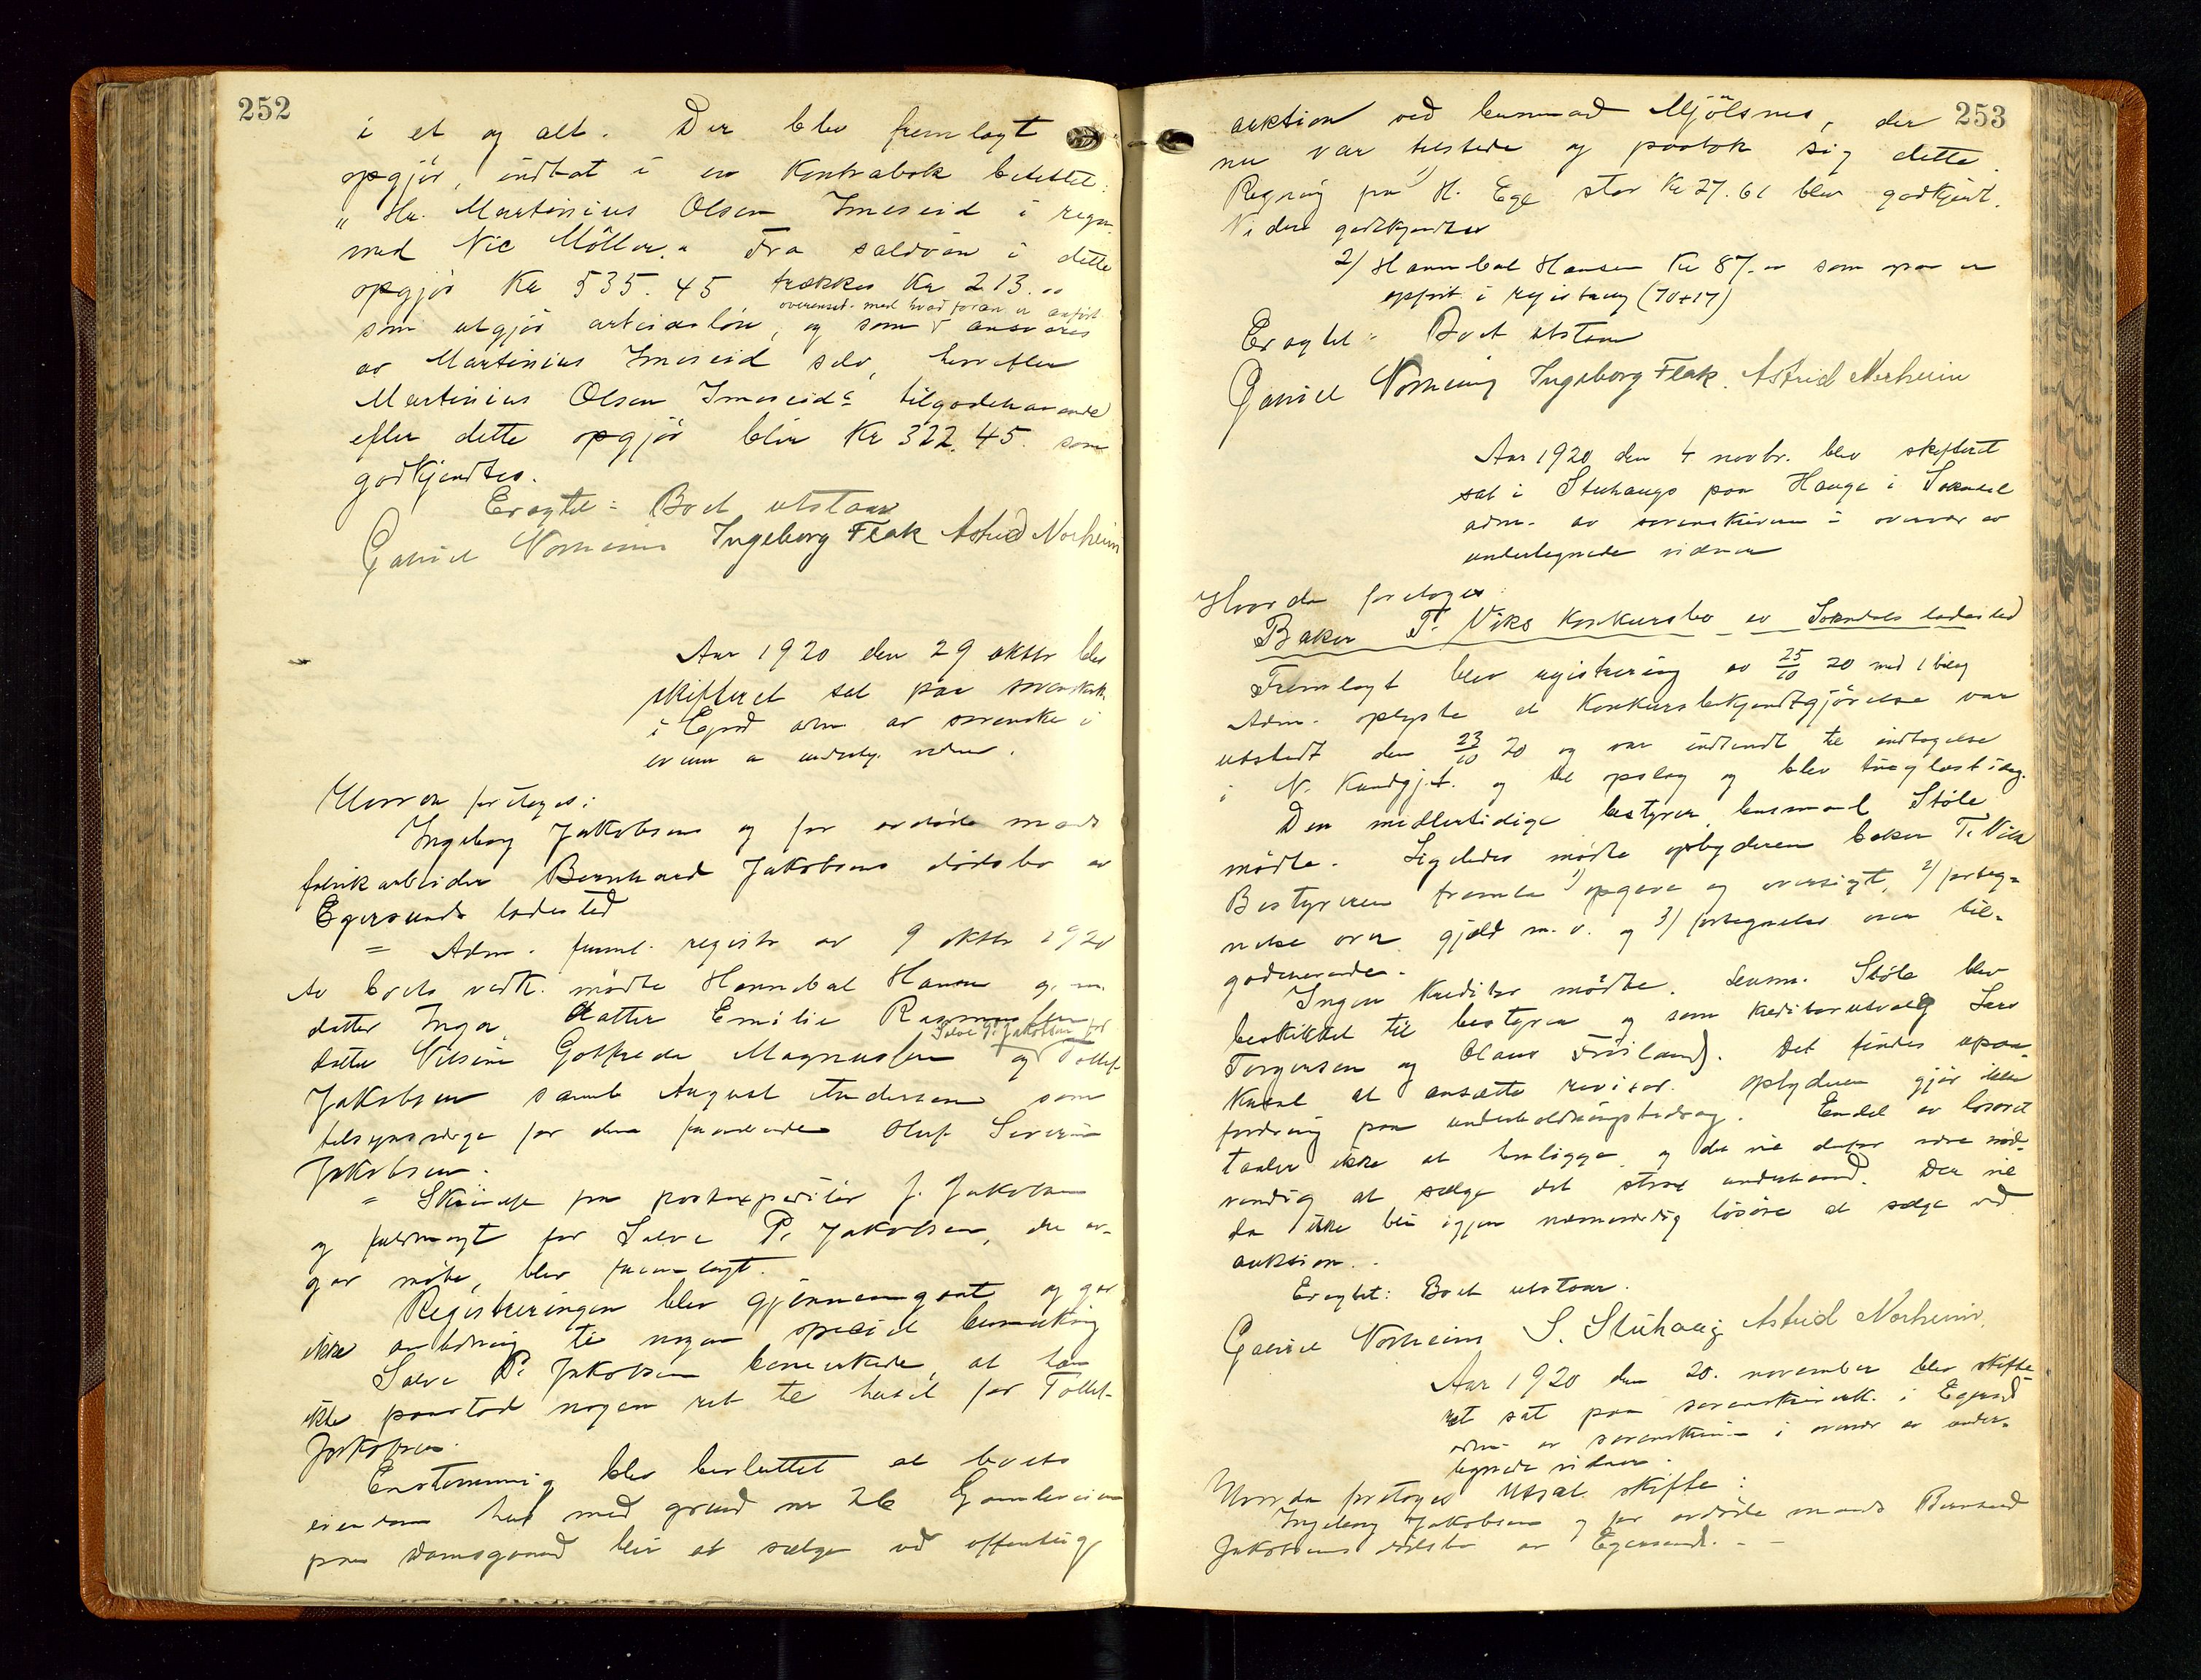 252
i et og alt. Der blev fremlagt
opgjør, indtat i en Kontrabok betittet:
"Hr. Martinius Olsen Imeseid i regn.
med Nic Möller." Fra saldoen i dette
opgjør Kr 535.45 trækkes Kr 213.00
overenst. med hvad foran er anført
som utgjør arbeidsløn, og som ansvares
av Martinius Imeseid selv, hvorefter
Martinius Olsen Imeseids tilgodehavende
efter dette opgjør blir Kr 322.45 som
godkjendtes.
Eragtet: Boet utstaar
Gabriel Norheim Ingeborg Fleak Astrid Norheim
Aar 1920 den 29 oktbr blev
skifteret sat paa sorenskk.
i Egsd adm av sorenskr i
overvær av underteg. vidner.
Hvorda foretages:
Ingeborg Jakobsens og før avdøde mands
fabrikarbeider Bernhard Jakobsens dødsbo av
Egersunds ladested
= Adm. freml. registr. av 9 oktbr 1920
Av boets vedk. mødte Hannibal Hansen g. m.
datter Inga, datter Emilie Rasmussen
Salve P. Jakobsen for
datter Nilsine Gotfreda Magnussen og Tollef
Jakobsen samt August Andersen som
tilsynsverge for den fraværende Oluf Severin
Jakobsen.
= Skrivelse fra postexpeditør J. Jakobsen
og fuldmagt for Salve P. Jakobsen, der av-
gav møte, blev fremlagt.
Registreringen blev gjennemgaat og gav
ikke anledning til nogen speciel bemerkning
Salve P. Jakobsen bemerkede, at han
ikke paastod nogen ret til huset for Tollef
Jakobsen.
Enstemmig blev besluttet at boets
eiendom hus med grund nr 26 Gamleveien
paa Damsgaard blir at sælge ved offentlig
253
auktion ved lensmand Mjölsnes, der
nu var tilstede og paatok sig dette.
Regning fra 1) H. Ege stor Kr 27.61 blev godkjent.
Videre godkjendtes
2/ Hannibal Hansen Kr 87.00 som ogsaa er
opført i registrering (70+17)
Eragtet: Boet utstaar
Gabriel Norheim Ingeborg Fleak. Astrid Norheim
Aar 1920 den 4 novbr. blev skifteret
sat i Stuhaugs paa Hauge i Sokndal
adm. av sorenskriveren i overvær av
undertegnede vidner
Hvorda foretages
Baker T. Viks Konkursbo av Sokndals ladested
Fremlagt blev registrering av 25/10 20 med 1 bilag
Adm. oplyste at Konkursbekjendtgjørelse var
utstedt den 23/10 20 og var indsendt til indtagelse
i N. Kundgj.t. og til opslag og blev tinglæst idag.
Den midlertidige bestyrer, lensmand Støle
mødte. Ligeledes mødte opbyderen baker T. Vik
Bestyreren fremla 1) opgave og oversigt, 2) forteg-
nelse over gjeld m.v. og 3) fortegnelse over til-
godehavende.
Ingen Kreditor mødte. Lensm. Støle blev
beskikket til bestyrer og som kreditorutvalg Lars
Torgersen og Olaus Frøiland. Det findes upaa-
krævet at ansætte revisor. Opbyderen gjør ikke
fordring paa underholdningsbidrag. Endel av løsøret
taaler ikke at henligge, og det vil derfor være nød-
vendig at sælge det strax underhaand. Der vil
da ikke bli igjen nævneværdig løsøre at sælge ved
auktion. .
Eragtet: Boet utstaar.
Gabriel Norheim S. Stuhaug Astrid Norheim.
Aar 1920 den 20. november blev skifte-
ret sat paa sorenskriverk. i Egersd
adm av sorenskriv i overvær av under-
tegnede vidner.
Hvorda foretages utsat skifte:
Ingeborg Jakobsens og før avdøde mands Bernhard
Jakobsens dødsbo av Egersund. - -